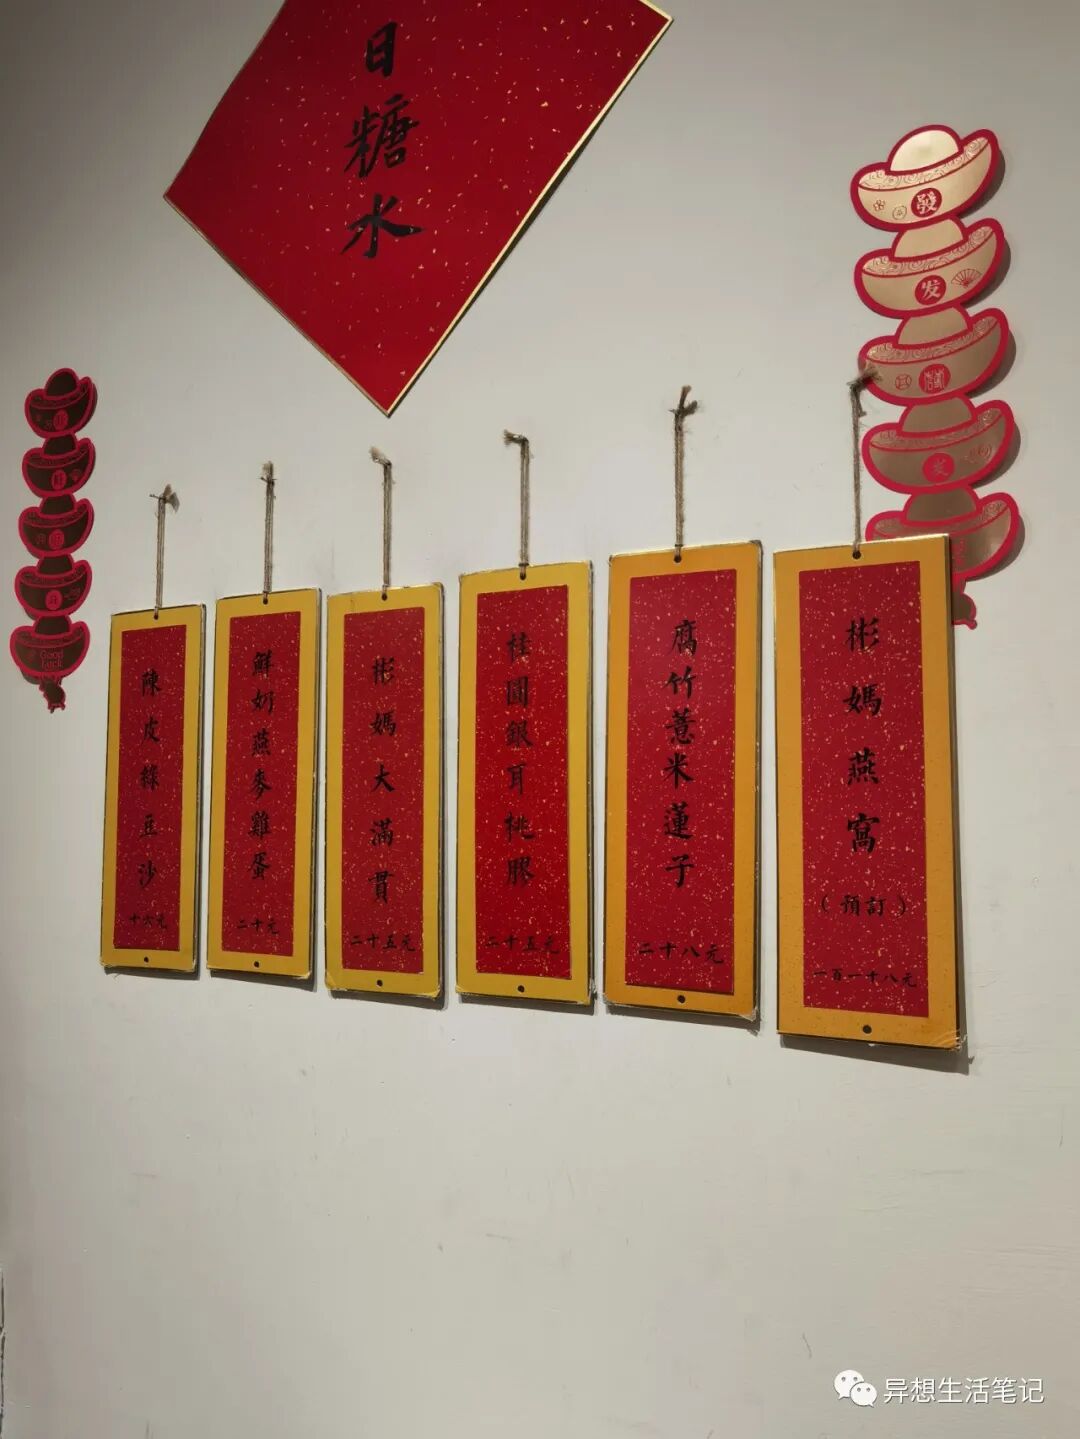 日糖水
陳皮綠豆沙
十六元
鮮奶燕麥雞蛋
二十元
彬媽大滿貫
二十五元
桂圓銀耳桃膠
二十五元
腐竹薏米蓮子
二十八元
彬媽燕窩
（預訂）
一百一十八元
發
发
发
Good
Luck
异想生活笔记